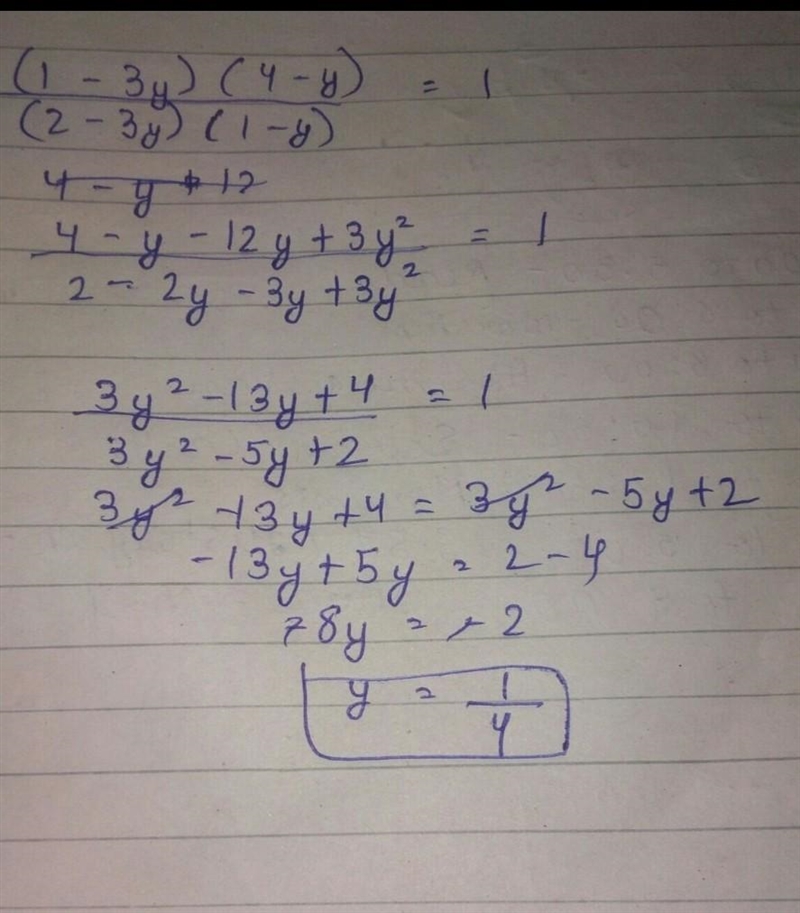 (1 - 3y) (4 - y) = 1
(2 - 3y) (1 - y)
4 - y + 12
4 - y - 12y + 3y² = 1
2 - 2y - 3y + 3y²
3y² - 13y + 4 = 1
3y² - 5y + 2
3y² - 13y + 4 = 3y² - 5y + 2
-13y + 5y = 2 - 4
-8y = -2
y = 1
4